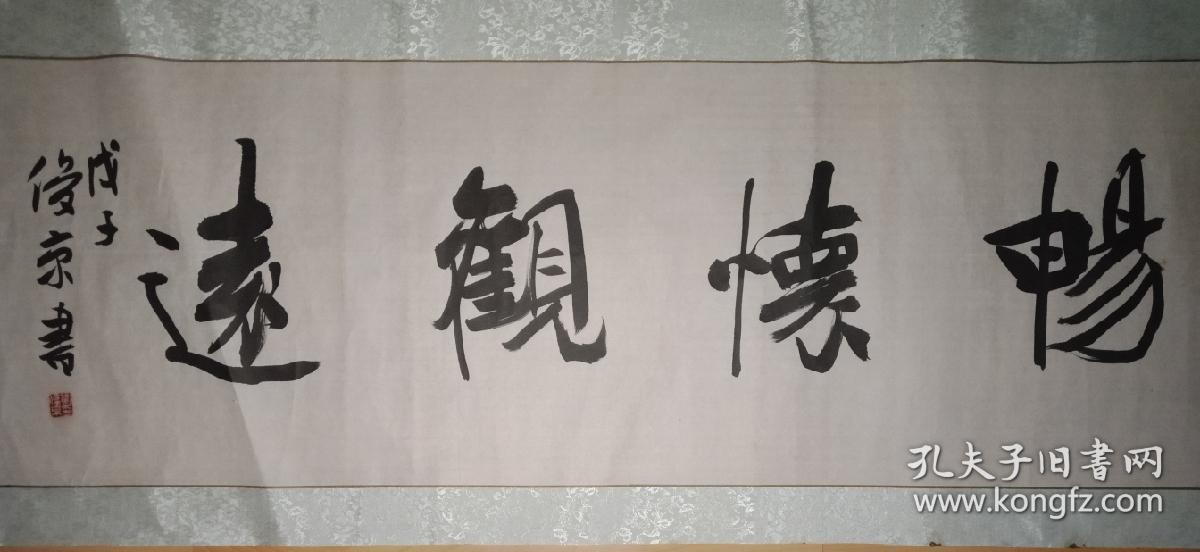 暢懷觀遠
戊子
俊京書
孔夫子旧書网
www.kongfz.com